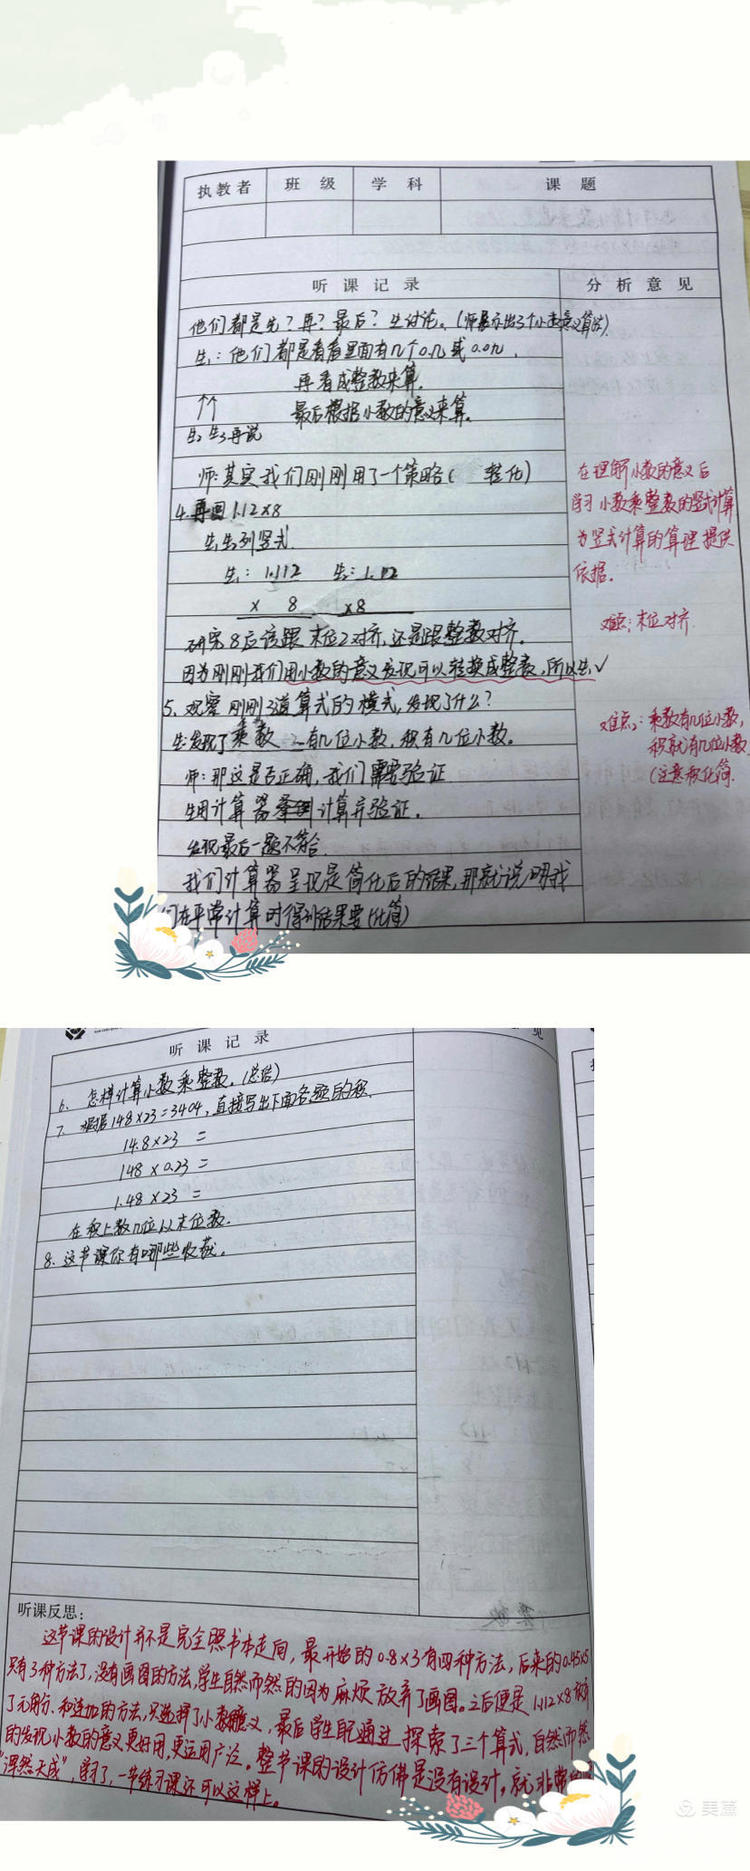 执教者 班 级 学 科 课 题
听 课 记 录 分 析 意 见
他们都是先？再？最后？生讨论。(师展示出3个小数意义算法)
生₁：他们都是看看里面有几个0.几或0.0几，
再看成整数来算。
↑↑ 最后根据小数的意义来算。
生₂生₃再说
师：其实我们刚刚用了一个策略( 转化)
在理解小数的意义后
学习小数乘整数的竖式计算
为竖式计算的算理提供
依据。
4.再画1.12×8
生生列竖式.
生₁： 1.112 生₂：1.12
× 8 ×8
研究8应该跟末位2对齐，还是跟整数对齐。
难点：末位对齐.
因为刚刚我们用小数的意义发现可以转换成整数，所以生₁✓
5、观察刚刚3道算式的模式，发现了什么？
生：发现了乘数 一有几位小数，积有几位小数。
难点₂：乘数有几位小数，
积就有几位小数
(注意积化简.
师：那这是否正确，我们需要验证.
生用计算器 计算并验证。
发现最后一题不符合.
我们计算器呈现是简化后的结果，那就说明我
们在平常计算时得到结果要(化简)
听 课 记 录 见
6、怎样计算小数乘整数。(总结)
7、根据148×23=3404，直接写出下面各题的积.
14.8×23 =
148×0.23=
1.48×23 =
在积上数几位从末位数.
8.这节课你有哪些收获。
听课反思：
这节课的设计并不是完全照书本走向，最开始的0.8×3有四种方法，后来的0.45×5
只有3种方法了，没有画图的方法，学生自然而然的因为麻烦放弃了画图。之后便是1.112×8放弃
了元角分、和连加的方法，只选择了小数意义，最后学生能通过探索了三个算式，自然而然
的发现小数的意义更好用，更运用广泛。整节课的设计仿佛是没有设计，就非常的
“浑然天成”，学习了，一节练习课还可以这样上。
美篇